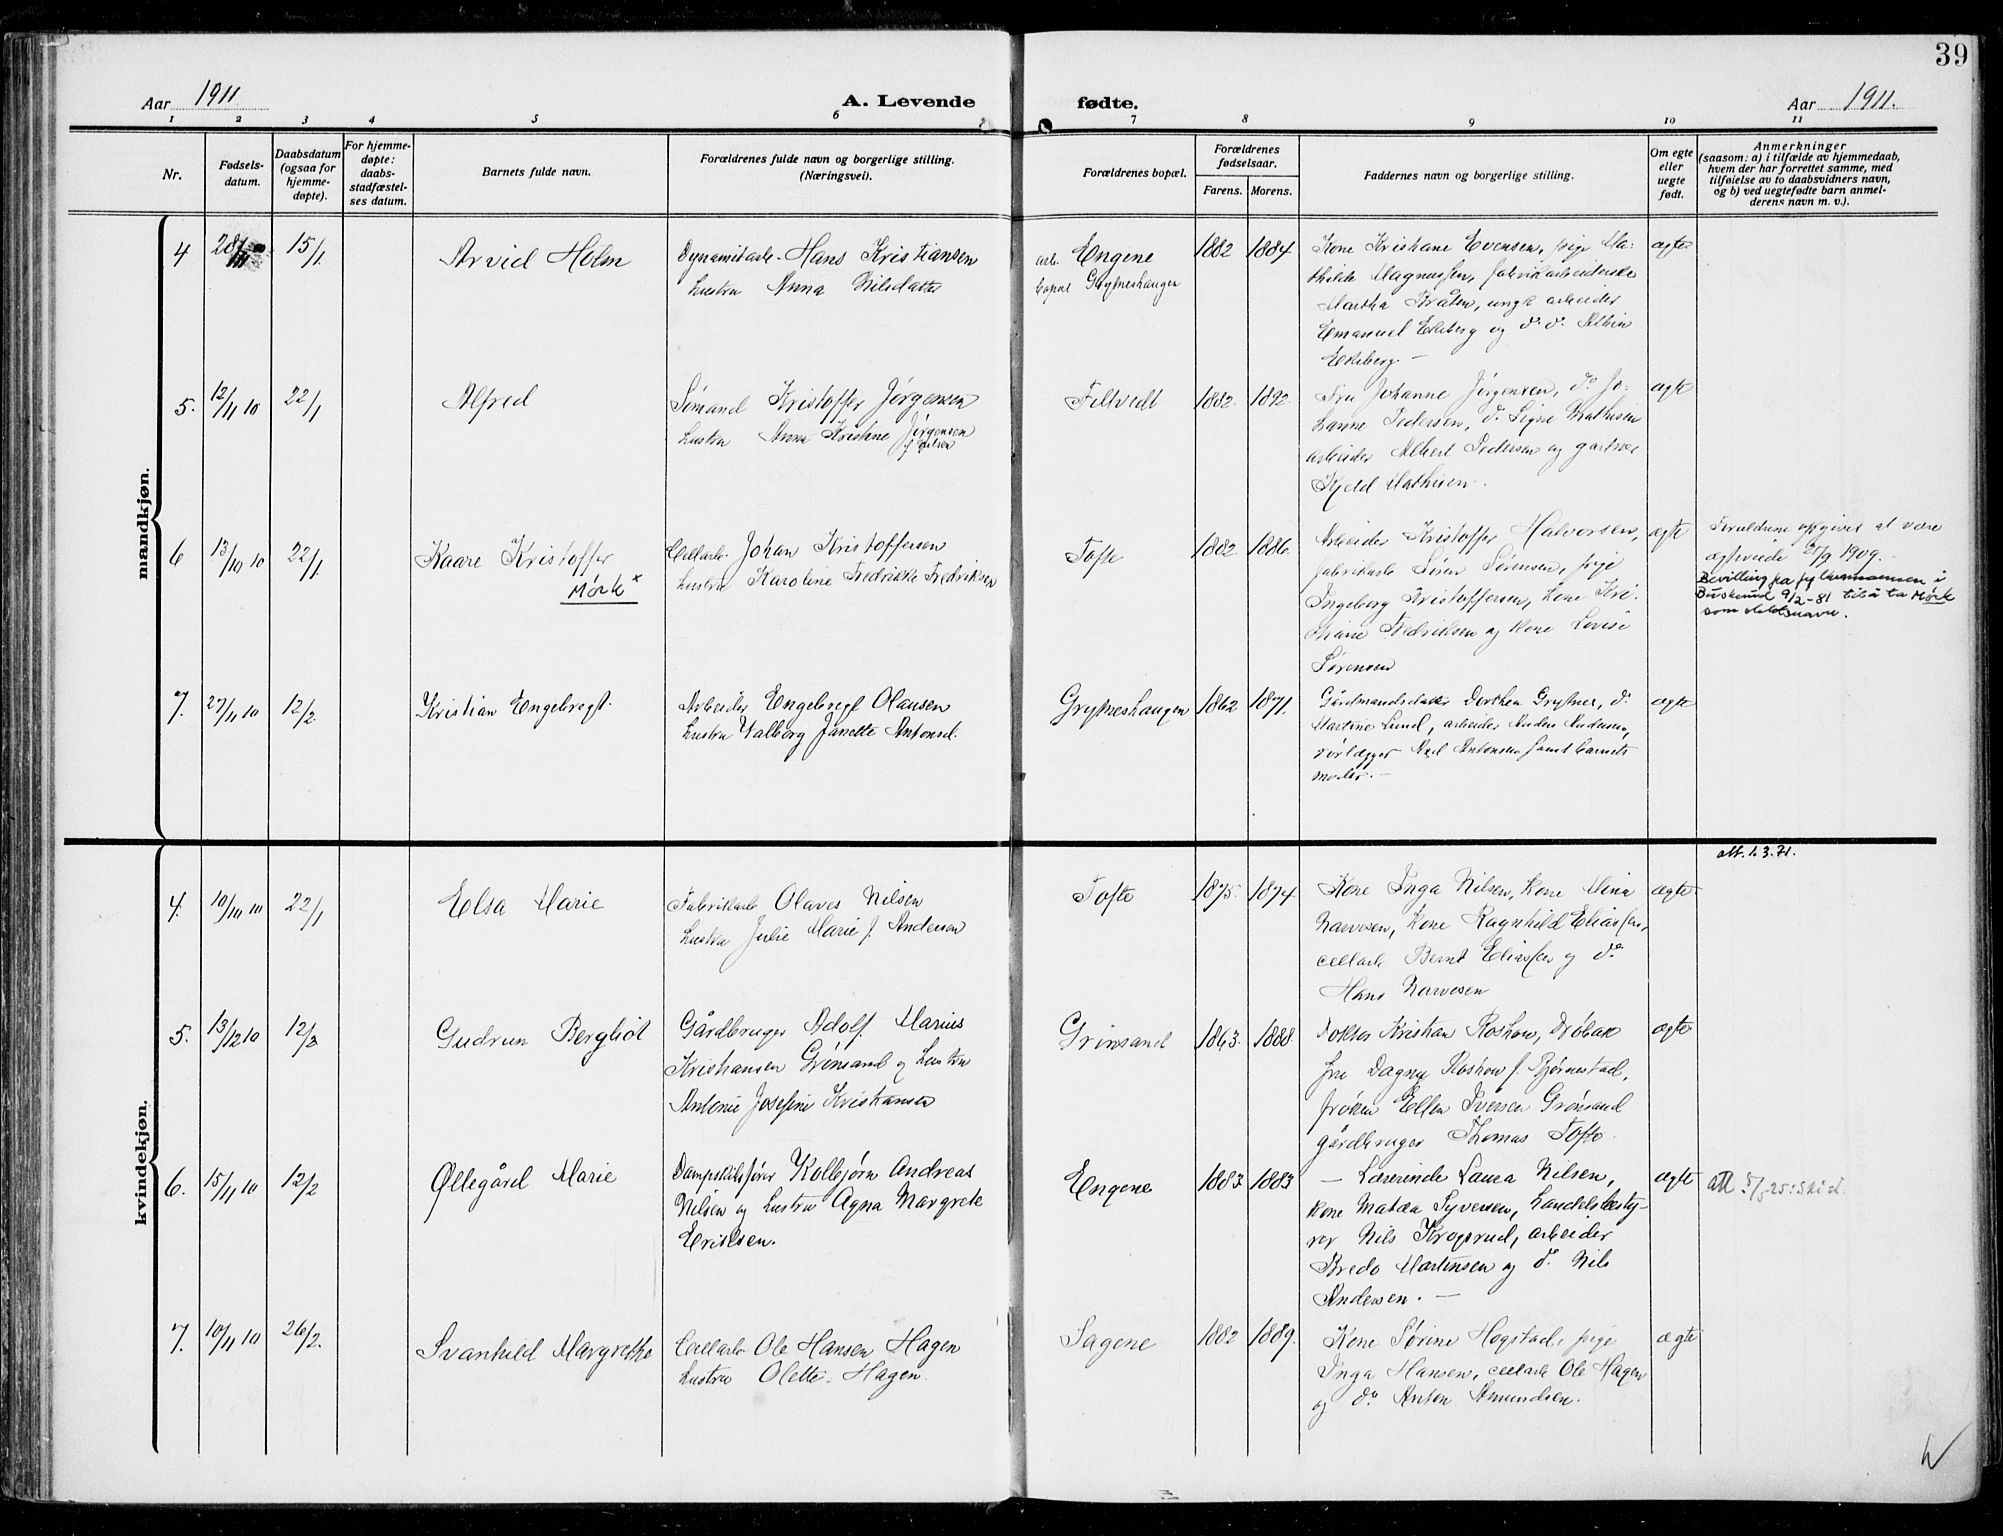 39
Aar 1911
A. Levende
fødte.
Aar 1911.
1 2 3 4 5 6 7 8 9 10 11
Nr.
Fødsels-
datum.
Daabsdatum
(ogsaa for
hjemme-
døpte).
For hjemme-
døpte:
daabs-
stadfæstel-
ses datum.
Barnets fulde navn.
Forældrenes fulde navn og borgerlige stilling.
(Næringsvei).
Forældrenes bopæl.
Forældrenes
fødselsaar.
Farens. Morens.
Faddernes navn og borgerlige stilling.
Om egte
eller
uegte
født.
Anmerkninger
(saasom: a) i tilfælde av hjemmedaab,
hvem der har forrettet samme, med
tilføielse av to daabsvidners navn,
og b) ved uegtefødte barn anmel-
derens navn m. v.).
mandkjøn.
4
15/1.
Arvid Holm
Dynamitarb. Hans Kristiansen
hustru Anna Nilsdatter
arb. Engene
bopæl Grytneshaugen
1882 1884
Kone Kristiane Evensen, pige Ma-
thilde Magnussen, fabrikarbeiderske
Martha Bråten, ungk. arbeider
Emanuel Ekeberg og do do
Ekeberg. —
ægte
5.
12/11 10
22/1
Alfred
Sømand Kristoffer Jørgensen
hustru Anna Kristine Jørgensen
Filtvedt
1882. 1892.
Fru Johanne Jørgensen, do Jo-
hanne Pedersen, do Signe Mathisen
arbeider Albert Pedersen og gartner
Kjeld Mathisen.
ægte
6
13/10 10
22/1.
Kaare Kristoffer
Mørk x
Cellarb. Johan Kristoffersen
hustru Karoline Fredrikke Fredriksen
Tofte
1882. 1886.
Arbeider Kristoffer Halvorsen,
fabrikarb. Søren Sørensen, pige
Ingeborg Kristoffersen, kone Kri-
stiane Fredriksen og kone Lovise
Sørensen
ægte
Forældrene opgivet at være
ægteviede 21/9 1909.
Bevilling fra fylkesmannen i
Buskerud 9/2-81 til å ta Mørk
som slektsnavn.
7.
27/11 10
12/2.
Kristian Engebregt.
Arbeider Engebregt Olausen
hustru Valborg Janette Antonsd.
Grytneshaugen
1862 1871.
Gårdmandsdatter Dorthea Grytnes, do
Martine Lund, arbeider Anders Andersen,
rørlægger Axel Antonsen samt barnets
moder. —
ægte
kvindekjøn.
att. 1.3.71.
4.
10/10 10
22/1
Elsa Marie
Fabrikarb. Olaves Nilsen
hustru Julie Marie f. Andersen
Tofte
1875. 1874.
Kone Inga Nilsen, kone Mina
Narvesen, kone Ragnhild Eliassen,
cellarb. Bernt Eliassen og do
Hans Narvesen
ægte
5.
13/12 10
12/2
Gudrun Bergliot
Gårdbruger Adolf Marius
Kristiansen Grinsand og hustru
Antonie Josefine Kristiansen
Grinsand
1863. 1888.
Doktor Kristian Roshow, Drøbak
fru Dagny Roshow f. Bjørnestad,
frøken Ellen Iversen Grønsand
gårdbruger Thomas Tofte.
ægte
6.
15/11 10
12/2
Øllegård Marie
Dampskibsfører Kolbjørn Andreas
Nilsen og hustru Agna Margrete
Eriksen.
Engene
1883 1883
— Lærerinde Laura Nilsen,
kone Matea Syversen, handelsbesty-
rer Nils Krogsrud, arbeider
Bredo Martinsen og do Nils
Andersen. —
ægte
att. 5/5 25:
7.
10/11 10
26/2.
Svanhild Margrethe
Cellarb. Ole Hansen Hagen
hustru Olette Hagen.
Sagene
1882 1889.
Kone Sørine Hogstad, pige
Inga Hansen, cellarb. Ole Hagen
og do Anton Amundsen.
ægte